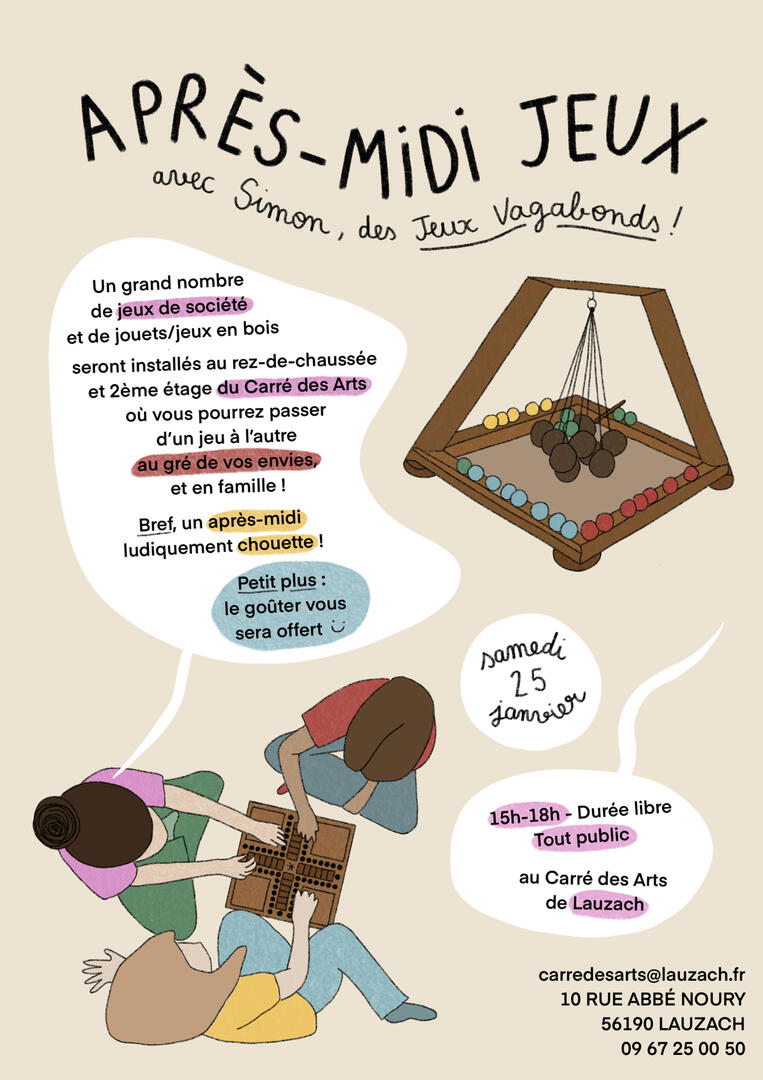 APRÈS-MiDi JEUX
avec Simon, des Jeux Vagabonds !
Un grand nombre
de jeux de société
et de jouets/jeux en bois
seront installés au rez-de-chaussée
et 2ème étage du Carré des Arts
où vous pourrez passer
d'un jeu à l'autre
au gré de vos envies,
et en famille !
Bref, un après-midi
ludiquement chouette !
Petit plus :
le goûter vous
sera offert
samedi
25
janvier
15h-18h - Durée libre
Tout public
au Carré des Arts
de Lauzach
carredesarts@lauzach.fr
10 RUE ABBÉ NOURY
56190 LAUZACH
09 67 25 00 50